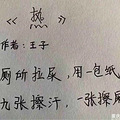 《热》
作者:王子
厕所拉尿,用一包纸
九张擦汗,一张擦屁